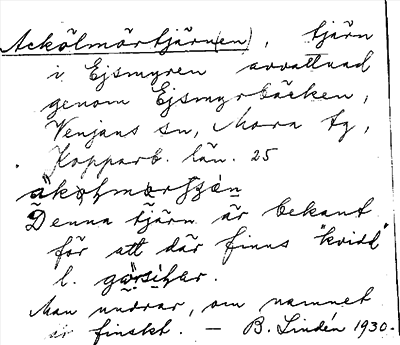 Ackölmörtjärn(en), tjärn
i Ejsmyren avvattnad
genom Ejsmyrbäcken,
Venjans sn, Mora tg,
Kopparb. län. 25
Denna tjärn är bekant
för att där finns "kvidd"
l.
Man undrar, om namnet
är finskt. – B. Lindén 1930.